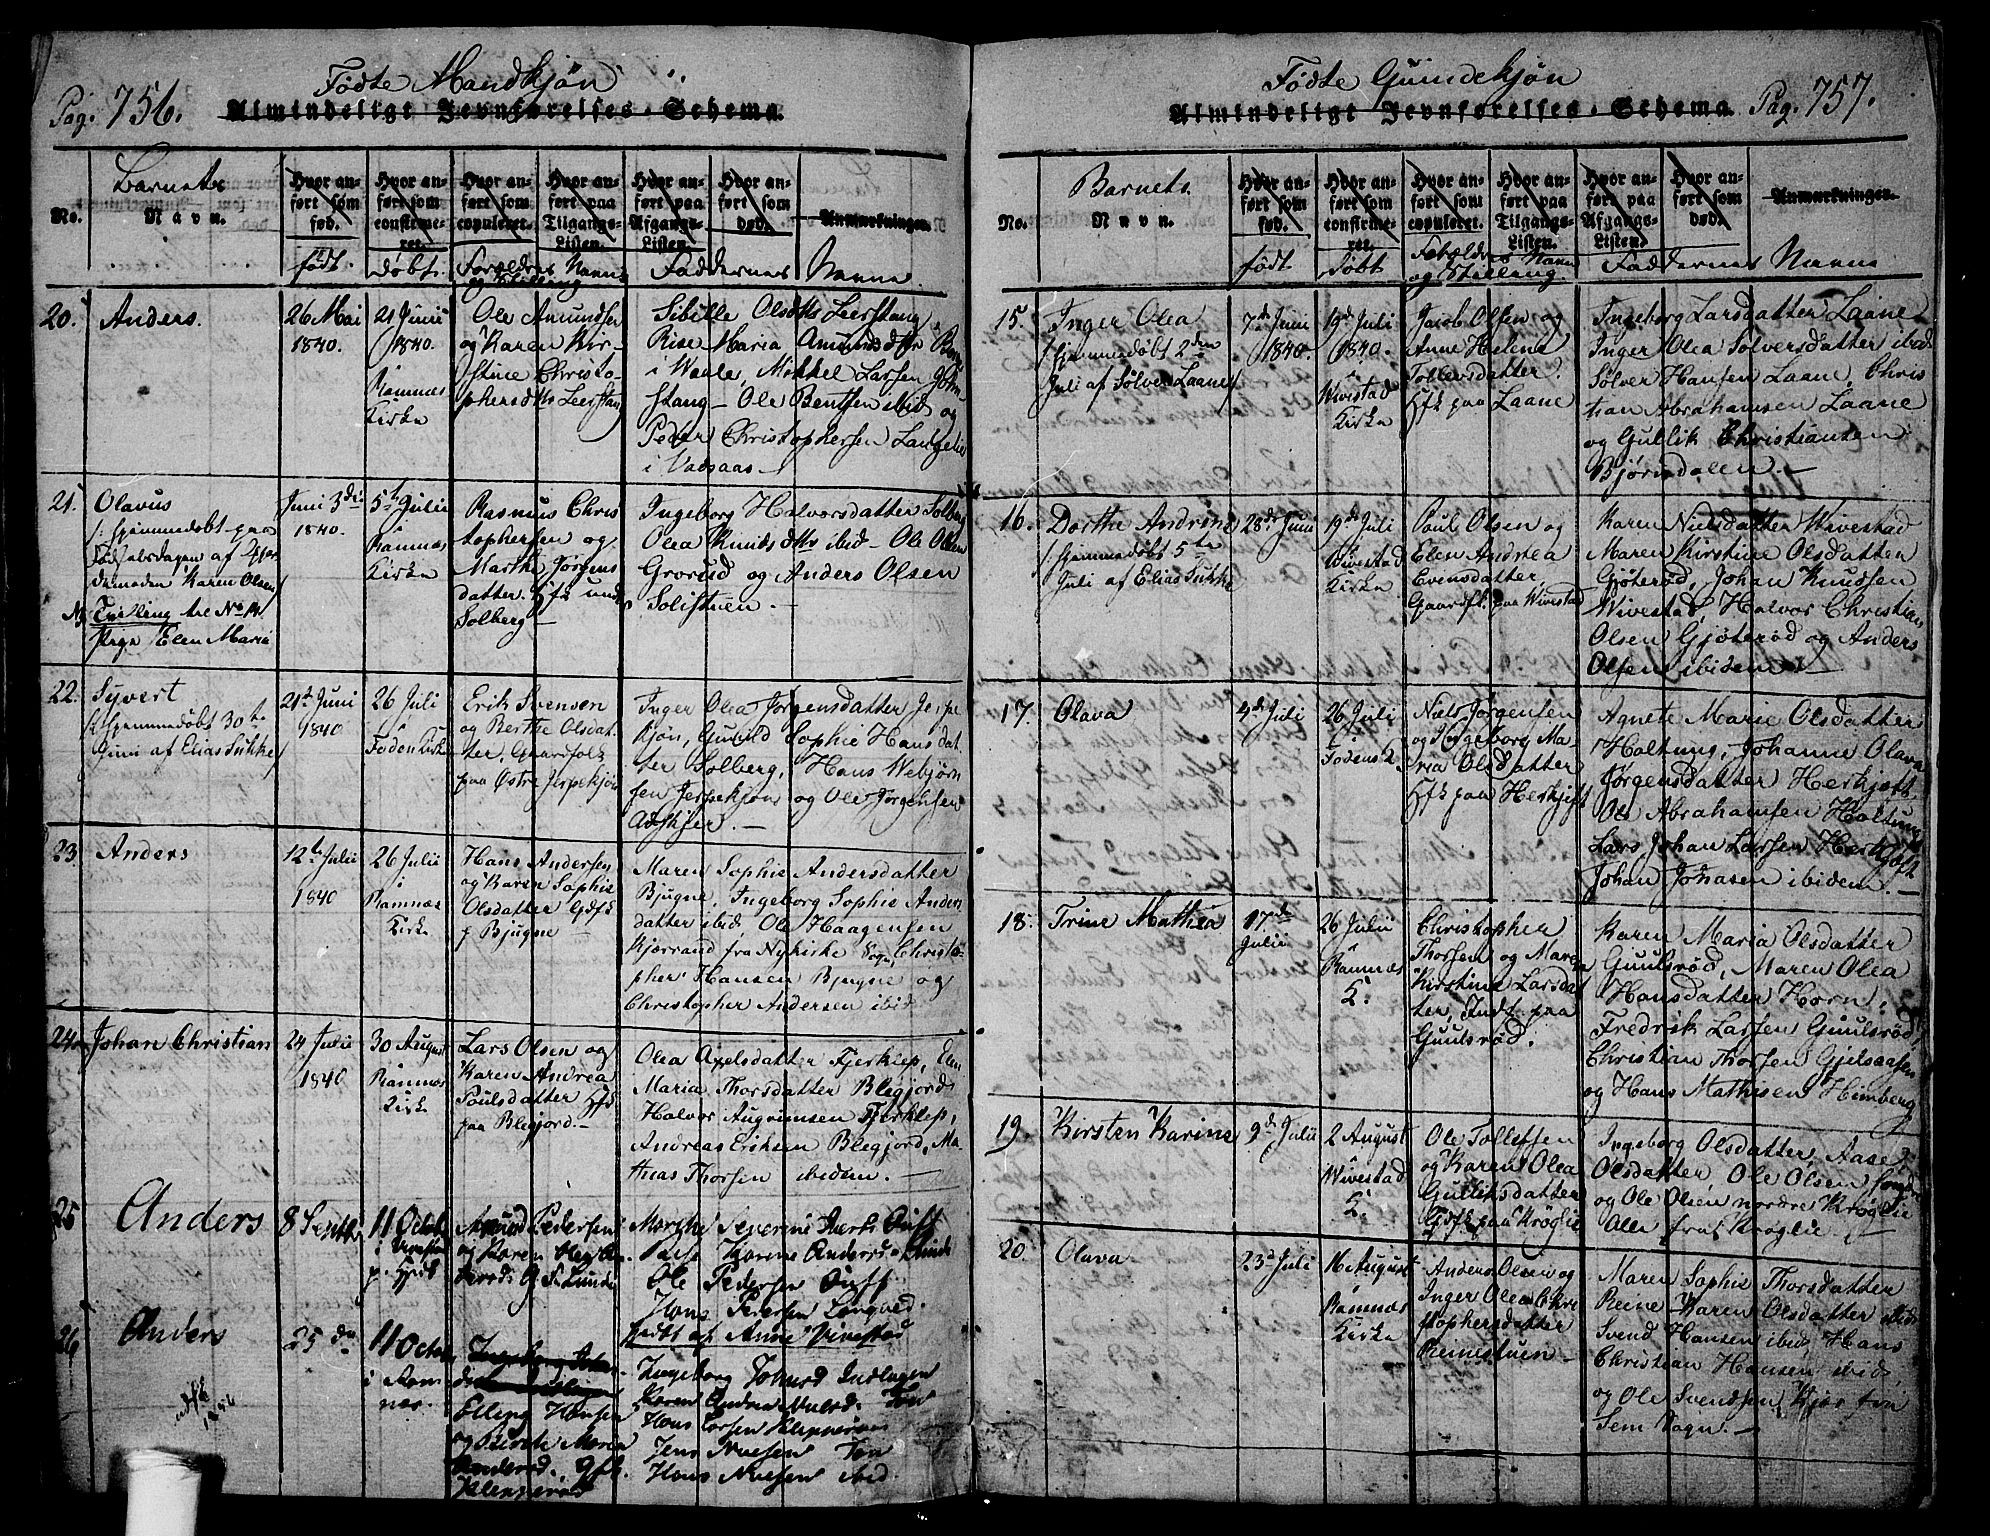 Pag. 756.
Fødte Mandkjøn
Almindeligt Jevnførelses-Schema.
No.
Barnets
Navn.
Hvor an-
ført som
fød.
født.
Hvor an-
ført som
confirme-
ret.
døbt.
Hvor an-
ført som
copuleret.
Hvor an-
ført paa
Tilgangs-
Listen.
Forældres Navne
og Stilling
Hvor an-
ført paa
Afgangs-
Listen.
Hvor an-
ført som
død.
Anmærkninger.
Faddernes Navne
20.
Anders.
26 Mai
1840.
21 Junii
1840.
i
Ramnæs
Kirke
Ole Amundsen
og Karen Kir-
stine Christo-
phersdttr Leerstang
Sibille Olsdttr Leerstang
Rise Maria Amundsdttr
i Waale, Mikkel Larsen
stang - Ole Bentsen ibid og
Peder Christophersen
i Vadsaas -
21.
Olavus
/: hjemmedøbt paa
Fødselsdagen af Gjor-
demoden Karen Olsen/
Tvilling til No 14
Pige Elen Maria
Juni 3die
1840.
5te Julii
i
Ramnæs
Kirke
Rasmus Chris
tophersen og
Marthe Jørgens
datter. Hfk under
Solberg
Ingeborg Halvorsdatter Solberg
Olea Knudsdttr ibid - Ole Olsen
Grorud og Anders Olsen
Solistuen. -
22.
Syvert
/: hjemmedøbt 30te
Juni af Elias Sukke/
21de Juni
1840
26 Juli
i
Foden Kirke
Erik Svensen
og Berthe Olsdat-
ter, Gaardfolk
paa Østre Jerpekjøn
Inger Olea Jørgensdatter Jerpe
kjøn, Gunild Sophie Hansdat-
ter Solberg, Hans Webjørn
sen Jerpekjøns og Ole Jørgensen
Adskjer. -
23
Anders
12te Julii
1840
26 Julii
i
Ramnæs
Kirke
Hans Andersen
og Karen Sophie
Olsdatter Gdfk
p Bjugne
Maren Sophie Andersdatter
Bjugne, Ingeborg Sophie Anders
datter ibid, Ole Haagensen
Kjærrand fra Nykirke Sogn, Christo-
pher Hansen Bjugne og
Christopher Andersen ibid
24.
Johan Christian
24 Julii
1840
30 August
Ramnæs
Kirke
Lars Olsen og
Karen Andrea
Poulsdatter Hfk
paa Blegjord. -
Olea Axelsdatter Fjerklep, Elen
Maria Thorsdatter Blegjord,
Halvor Augrimsen Fjerklep,
Andreas Eriksen Blegjord, Ma-
thias Thorsen ibidem. -
25
Anders
8 Septbr
11 Octob
i
p. Hjck
Amund Pedersen
og Karen
G. F. Lunde
Marthe Severine
Karine Andersd. Lunde
Ole Pedersen
Hans Pedersen
holdt af Anne Vivestad
26
Anders
25 do
11 Octob
i Ram-
næs.
Elling Hansen
og Berthe Maria
Gfk.
Klepperas
Ingeborg
Karen
Hans Larsen Klepperaas
Jens Nielsen
Hans Nielsen ibid.
Pag. 757.
Fødte Qvindekjøn
Almindeligt Jevnførelses-Schema.
No.
Barnets
Navn.
Hvor an-
ført som
fød.
født
Hvor an-
ført som
confirme-
ret.
døbt
Hvor an-
ført som
copuleret.
Hvor an-
ført paa
Tilgangs-
Listen.
Forældres Navne
og Stilling
Hvor an-
ført paa
Afgangs-
Listen.
Hvor an-
ført som
død.
Anmærkninger.
Faddernes Navne
15.
Inger Olea
/: hjemmedøbt 2den
Juli af Sølver Laane/
7de Juni
1840.
19de Juli
1840.
i
Wivestad
Kirke
Jacob Olsen og
Anne Helene
Tollersdatter.
Hfk paa Laane
Ingeborg Larsdatter Laane
Inger Olea Sølversdatter ibid
Sølver Hansen Laane, Chris
tian Abrahamsen Laane
og Gullik Christiansen
Bjørndalen. -
16.
Dorthe Andrine
/: hjemmedøbt 5te
Juli af Elias Sukke
28de Juni
19de Juli
i
Wivestad
Kirke
Poul Olsen og
Elen Andrea
Evensdatter,
Gaardfk. paa Wivestad
Karen Nielsdatter Wivestad
Maren Kirstine Olsdatter
Gjøterød, Johan Knudsen
Wivestad, Halvor Christian
Olsen Gjøterød og Anders
Olsen ibidem -
17.
Olava
4de Juli
26 Juli
i
Fodens K.
Niels Jørgensen
og Ingeborg Ma-
ria Olsdatter
Hfk paa Herkjøft
Agnete Marie Olsdatter
Holtung, Johanne Olava
Jørgensdatter Herkjøft
Ole Abrahamsen Holtung
Lars Johan Larsen Herkjøft
Johan Johasen ibidem. -
18.
Trine Mathea
17de
Julii
26 Julii
i
Ramnæs
K.
Christopher
Thorsen og Maren
Kirstine Larsdat
ter, Indf. paa
Guulsrød.
Karen Maria Olsdatter
Guulsrød, Maren Olea
Hansdatter Horn,
Fredrik Larsen Guulsrød,
Christian Thorsen Gjelsaasen
og Hans Mathisen Himberg
19
Kirsten Karine
9de Julii
2 August
i
Wivestad
K.
Ole Tollefsen
og Karen Olea
Gulliksdatter
Gdfk paa Krøglie
Ingeborg Olsdatter, Aase
Olsdatter, Ole Olsen søndre
og Ole Olsen nordre Krøglie
Alle fra Krøglie
20
Olava
23de Juli
16 August
i
Ramnæs
Kirke
Anders Olsen og
Inger Olea Chri
stophersdatter
Reinestuen -
Maren Sophie Thorsdatter
Reine Karen Olsdatter ibid
Svend Hansen ibid, Hans
Christian Hansen ibid,
og Ole Svendsen Kjær fra
Sem Sogn. -